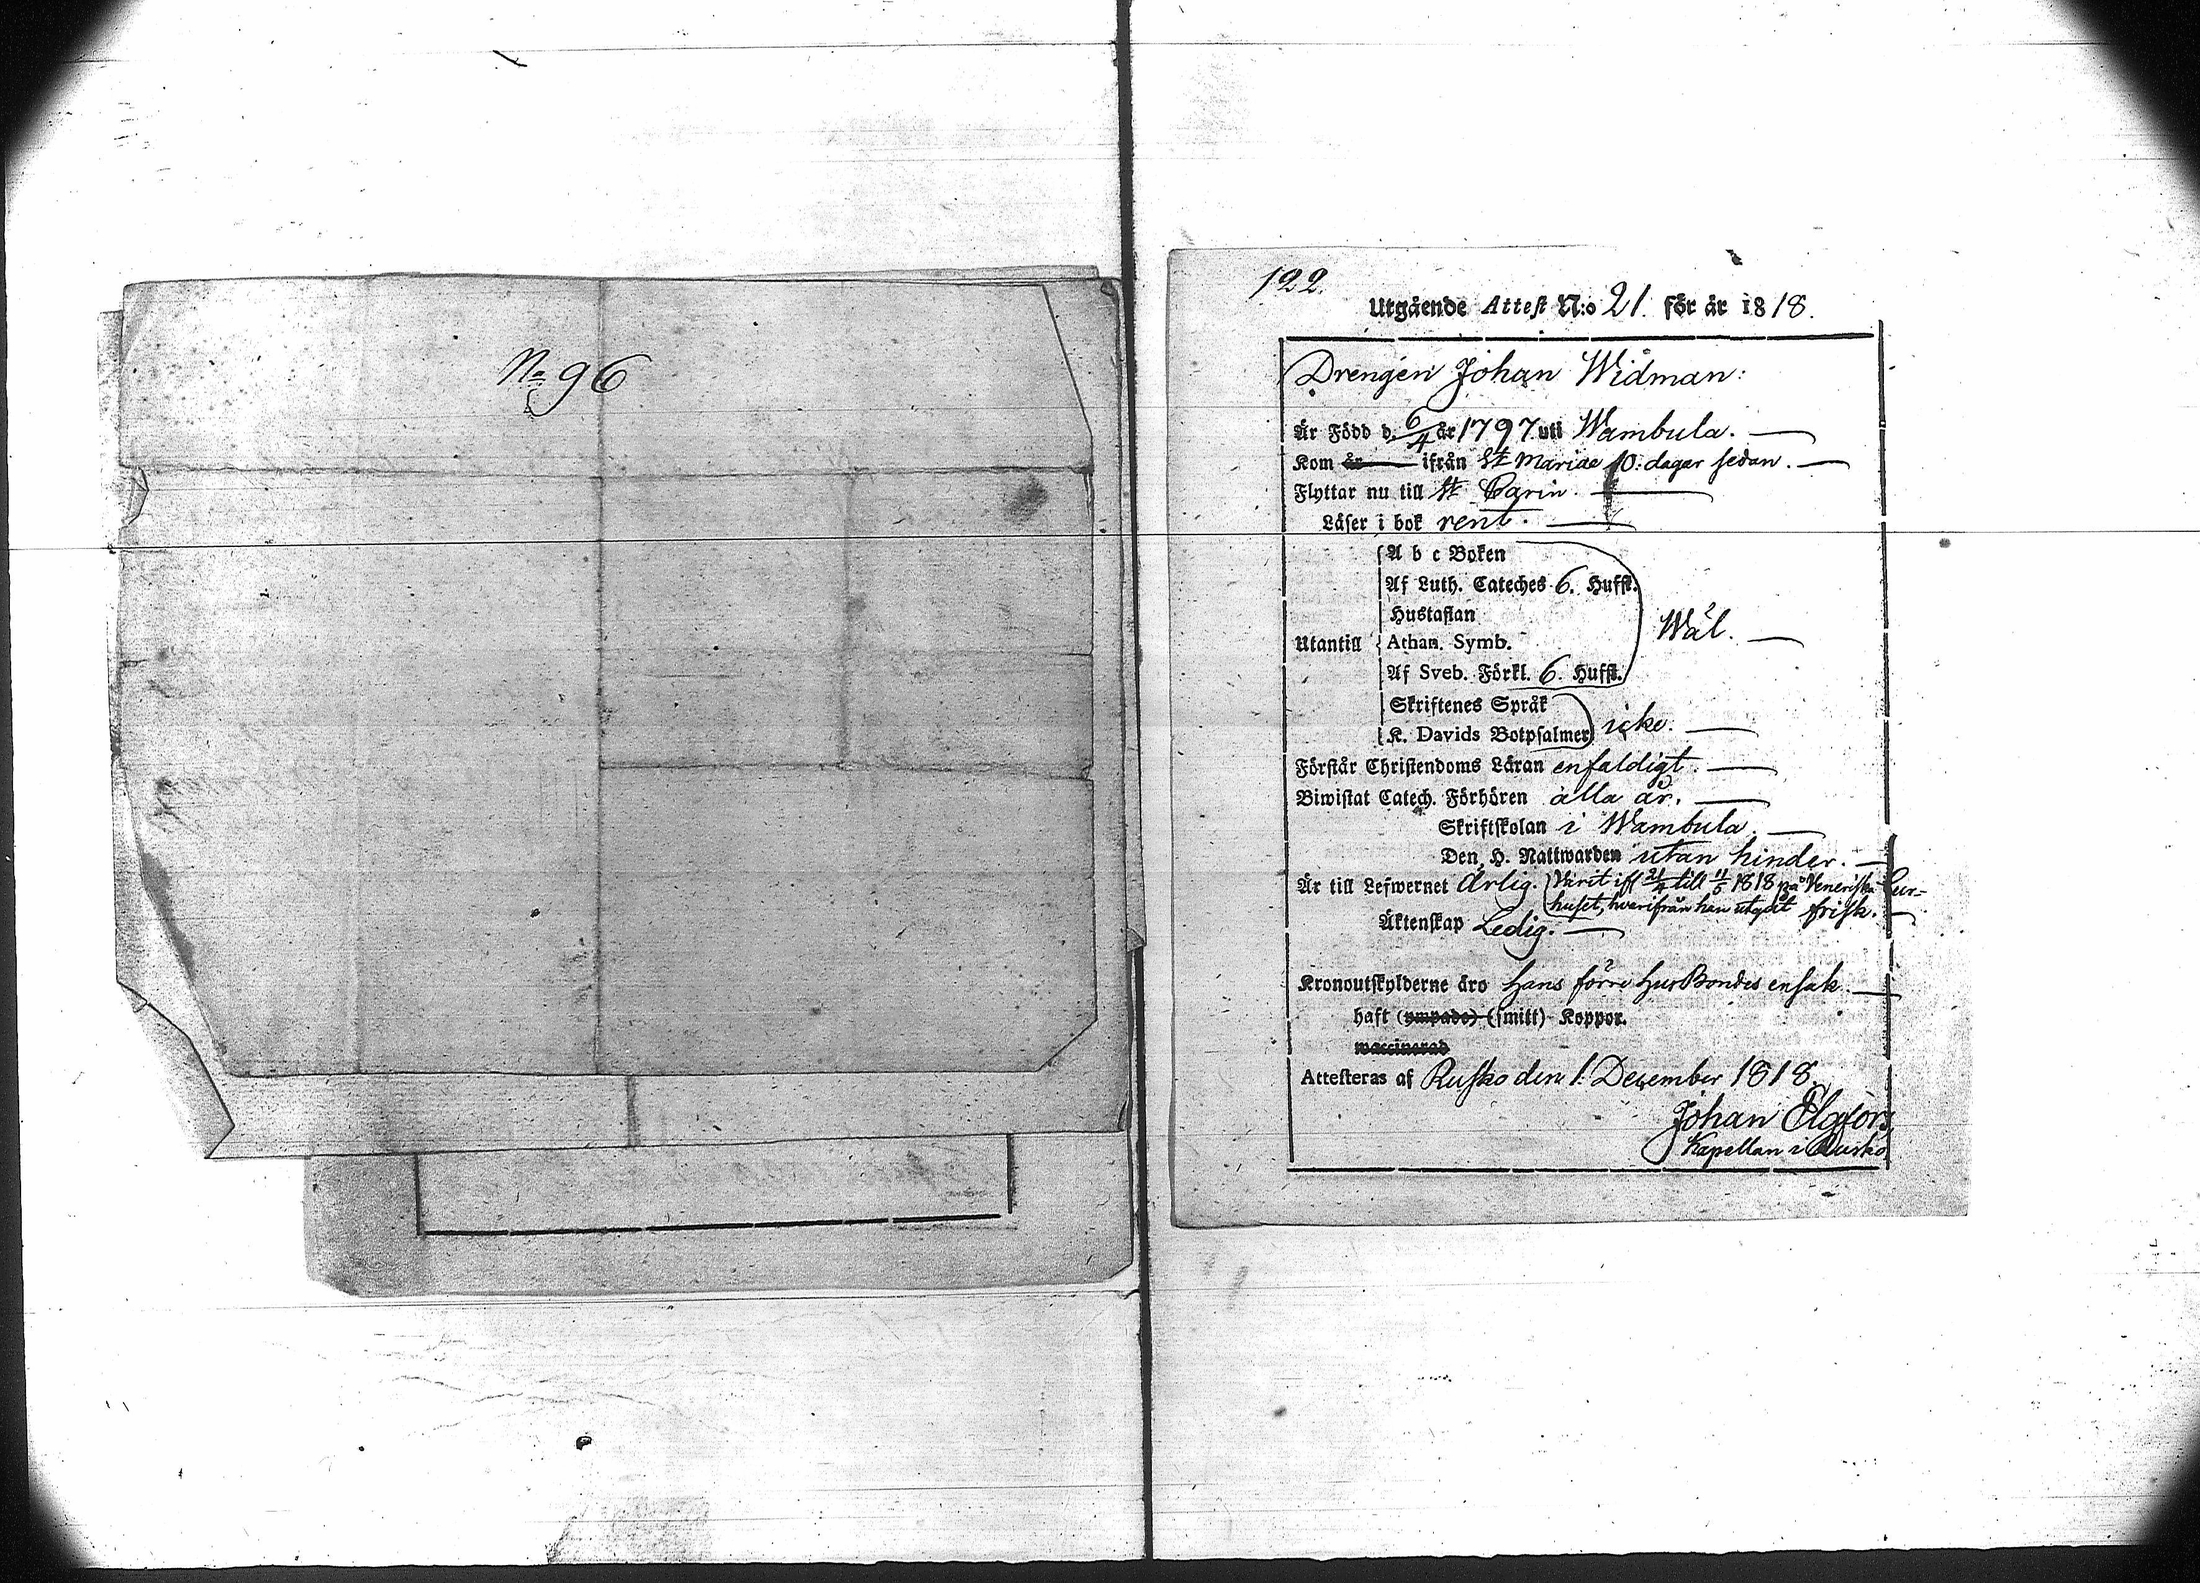 No 96
122.
Utgående Attest N:o 21. för år 1818.
Drengen Johan Widman:
Är Född d. 6/4 år 1797 uti Wambula.
Kom år ifrån St Mariae 10. dagar sedan.
Flyttar nu till St Carin.
Läser i bok rent.
A b c Boken
Af Luth. Cateches 6. Hufst.
Hustaflan
Utantill Athan. Symb. Wäl.
Af Sveb. Förkl. 6. Hufst.
Skriftenes Språk
K. Davids Botpsalmer icke.
Förstår Christendoms Läran enfaldigt.
Biwistat Catech. Förhören alla år.
Skriftskolan i Wambula.
Den H. Nattwarden utan hinder.
Är till Lefwernet ärlig. Varit ifr 21/4 till 11/5 1818 på Veneriska Cur-
huset, hvarifrån han utgått frisk.
Äktenskap Ledig.
Kronoutskylderne äro hans förre HusBondes ensak.
haft (ympade) (smitt) Koppor.
waccinerad
Attesteras af Rusko den 1. December 1818
Johan Elgfors,
Kapellan i Rusko